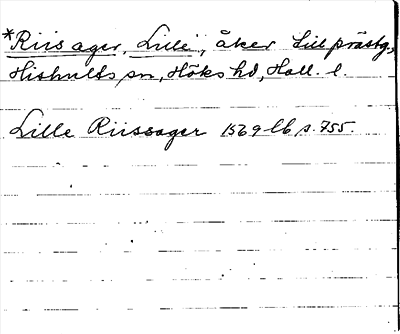 *Riis ager, Lille, åker till prästg.,
Hishults sn, Höks hd, Hall. l.
Lille Riissager 1569 lb s. 755.